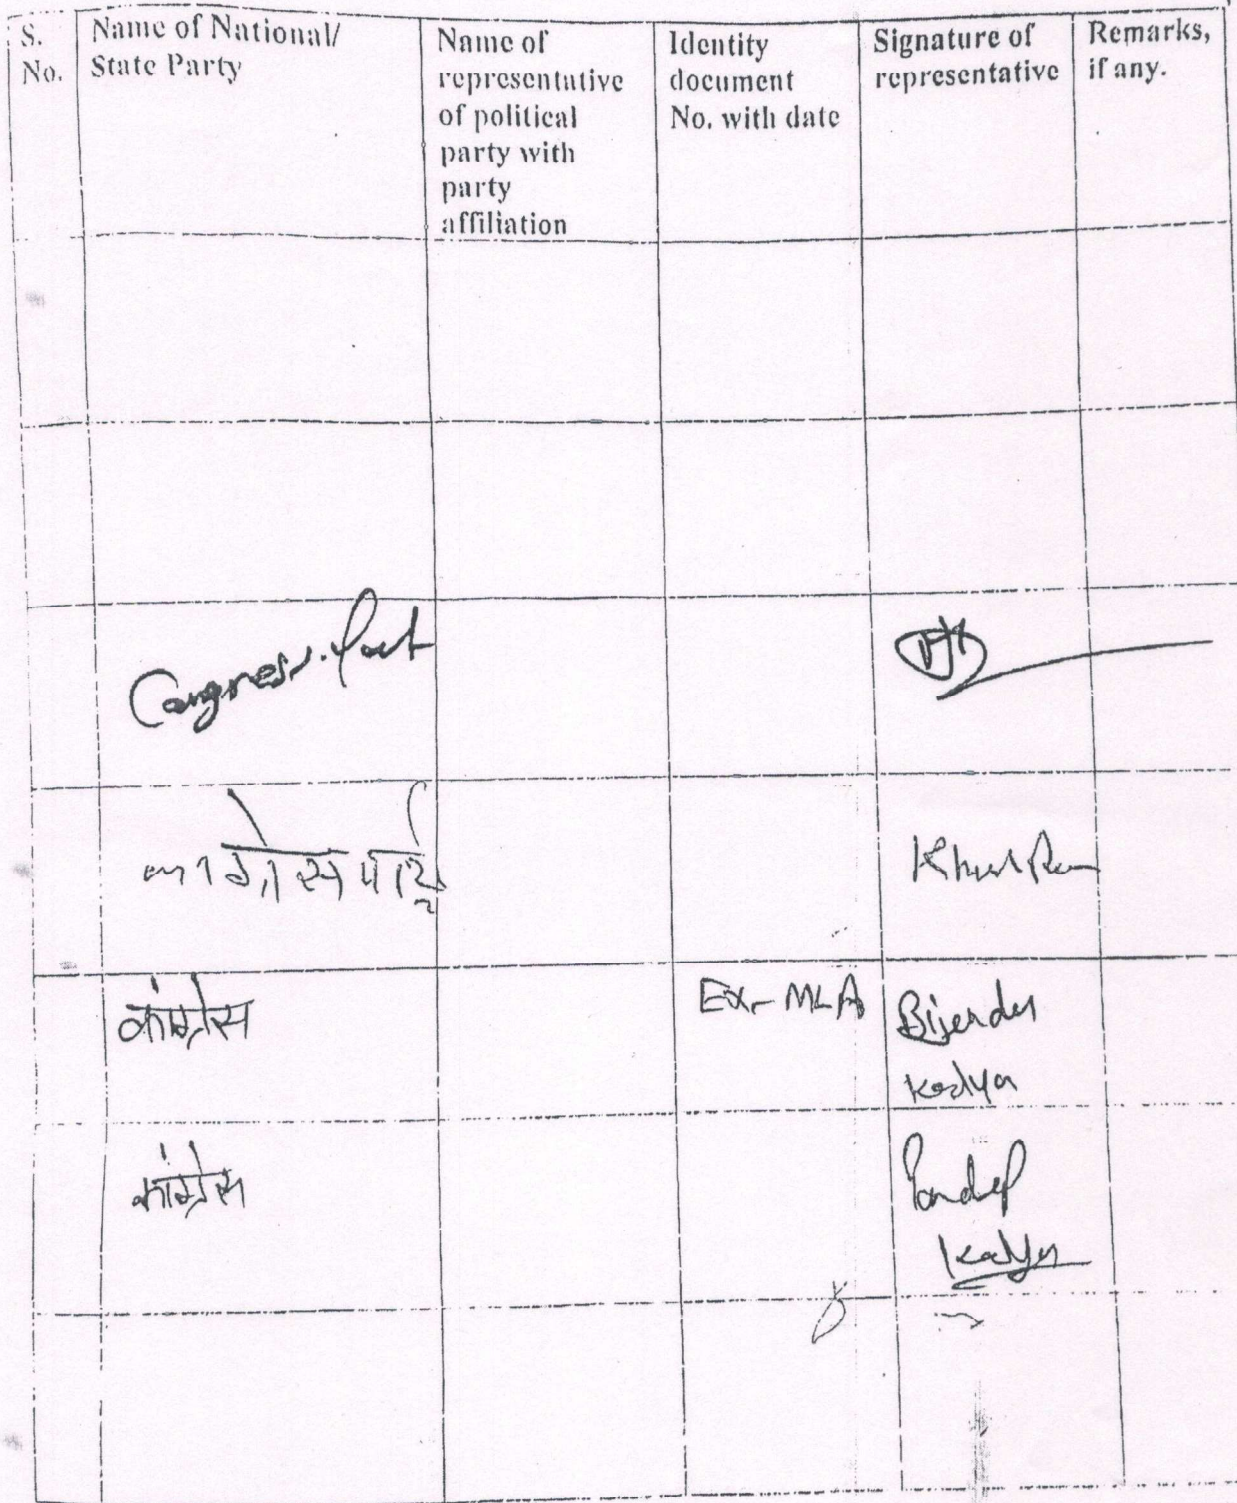 S. No.
Name of National/ State Party
Name of representative of political party with party affiliation
Identity document No. with date
Signature of representative
Remarks, if any.
Congress.
कांग्रेस
Ex-MLA
Bijender
Kadya
कांग्रेस
Kadya